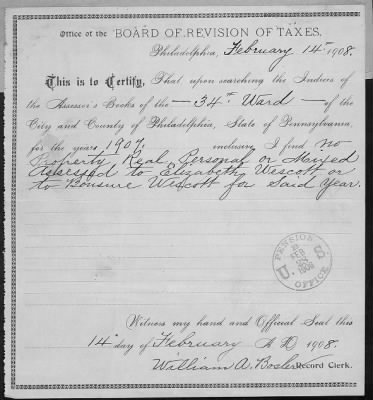 Office of the BOARD OF REVISION OF TAXES.
Philadelphia, February 14th 1908.
This is to Certify, That upon searching the Indices of
the Assessor's Books of the — 34th Ward — of the
City and County of Philadelphia, State of Pennsylvania,
for the years 1907, inclusive, I find no
Property Real, Personal or Mixed
Assessed to Elizabeth Wescott or
to Bonsure Wescott for Said Year.
U. S. PENSION OFFICE
FEB
1908
Witness my hand and Official Seal this
14th day of February A. D. 1908.
William A. Bosler Record Clerk.